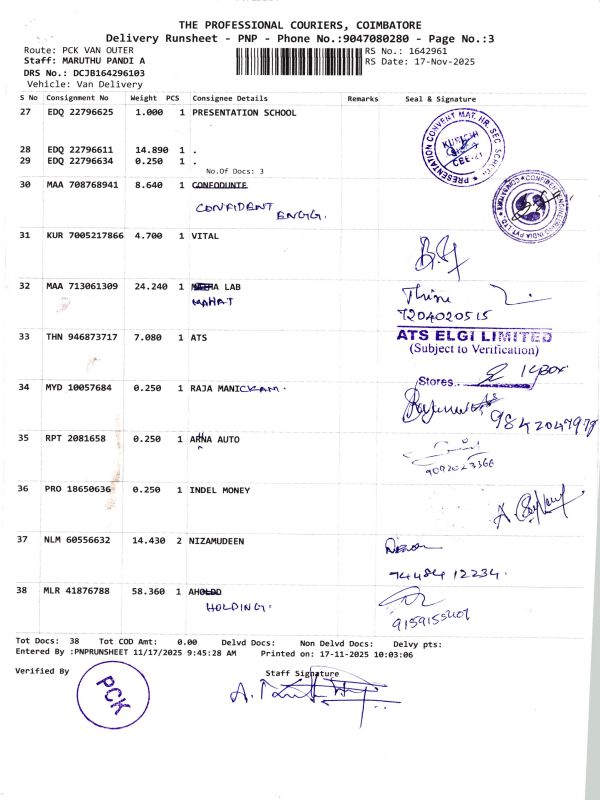 THE PROFESSIONAL COURIERS, COIMBATORE
Delivery Runsheet - PNP - Phone No.:9047080280 - Page No.:3
Route: PCK VAN OUTER
RS No.: 1642961
Staff: MARUTHU PANDI A
RS Date: 17-Nov-2025
DRS No.: DCJB164296103
Vehicle: Van Delivery
S No Consignment No Weight PCS Consignee Details Remarks Seal & Signature
27 EDQ 22796625 1.000 1 PRESENTATION SCHOOL
PRESENTATION CONVENT MAT. HR. SEC. SCHOOL
28 EDQ 22796611 14.890 1 .
29 EDQ 22796634 0.250 1 .
No.Of Docs: 3
30 MAA 708768941 8.640 1 CONFODUNIE
CONFIDENT
ENGG.
31 KUR 7005217866 4.700 1 VITAL
32 MAA 713061309 24.240 1 LAB
MAHAT
7204020515
33 THN 946873717 7.080 1 ATS
ATS ELGI LIMITED
(Subject to Verification)
Stores
34 MYD 10057684 0.250 1 RAJA MANICKAM.
9842047979
35 RPT 2081658 0.250 1 ARNA AUTO
36 PRO 18650636 0.250 1 INDEL MONEY
37 NLM 60556632 14.430 2 NIZAMUDEEN
74484 12234.
38 MLR 41876788 58.360 1
HOLDING.
Tot Docs: 38 Tot COD Amt: 0.00 Delvd Docs: Non Delvd Docs: Delvy pts:
Entered By :PNPRUNSHEET 11/17/2025 9:45:28 AM Printed on: 17-11-2025 10:03:06
Verified By
Staff Signature
PCK